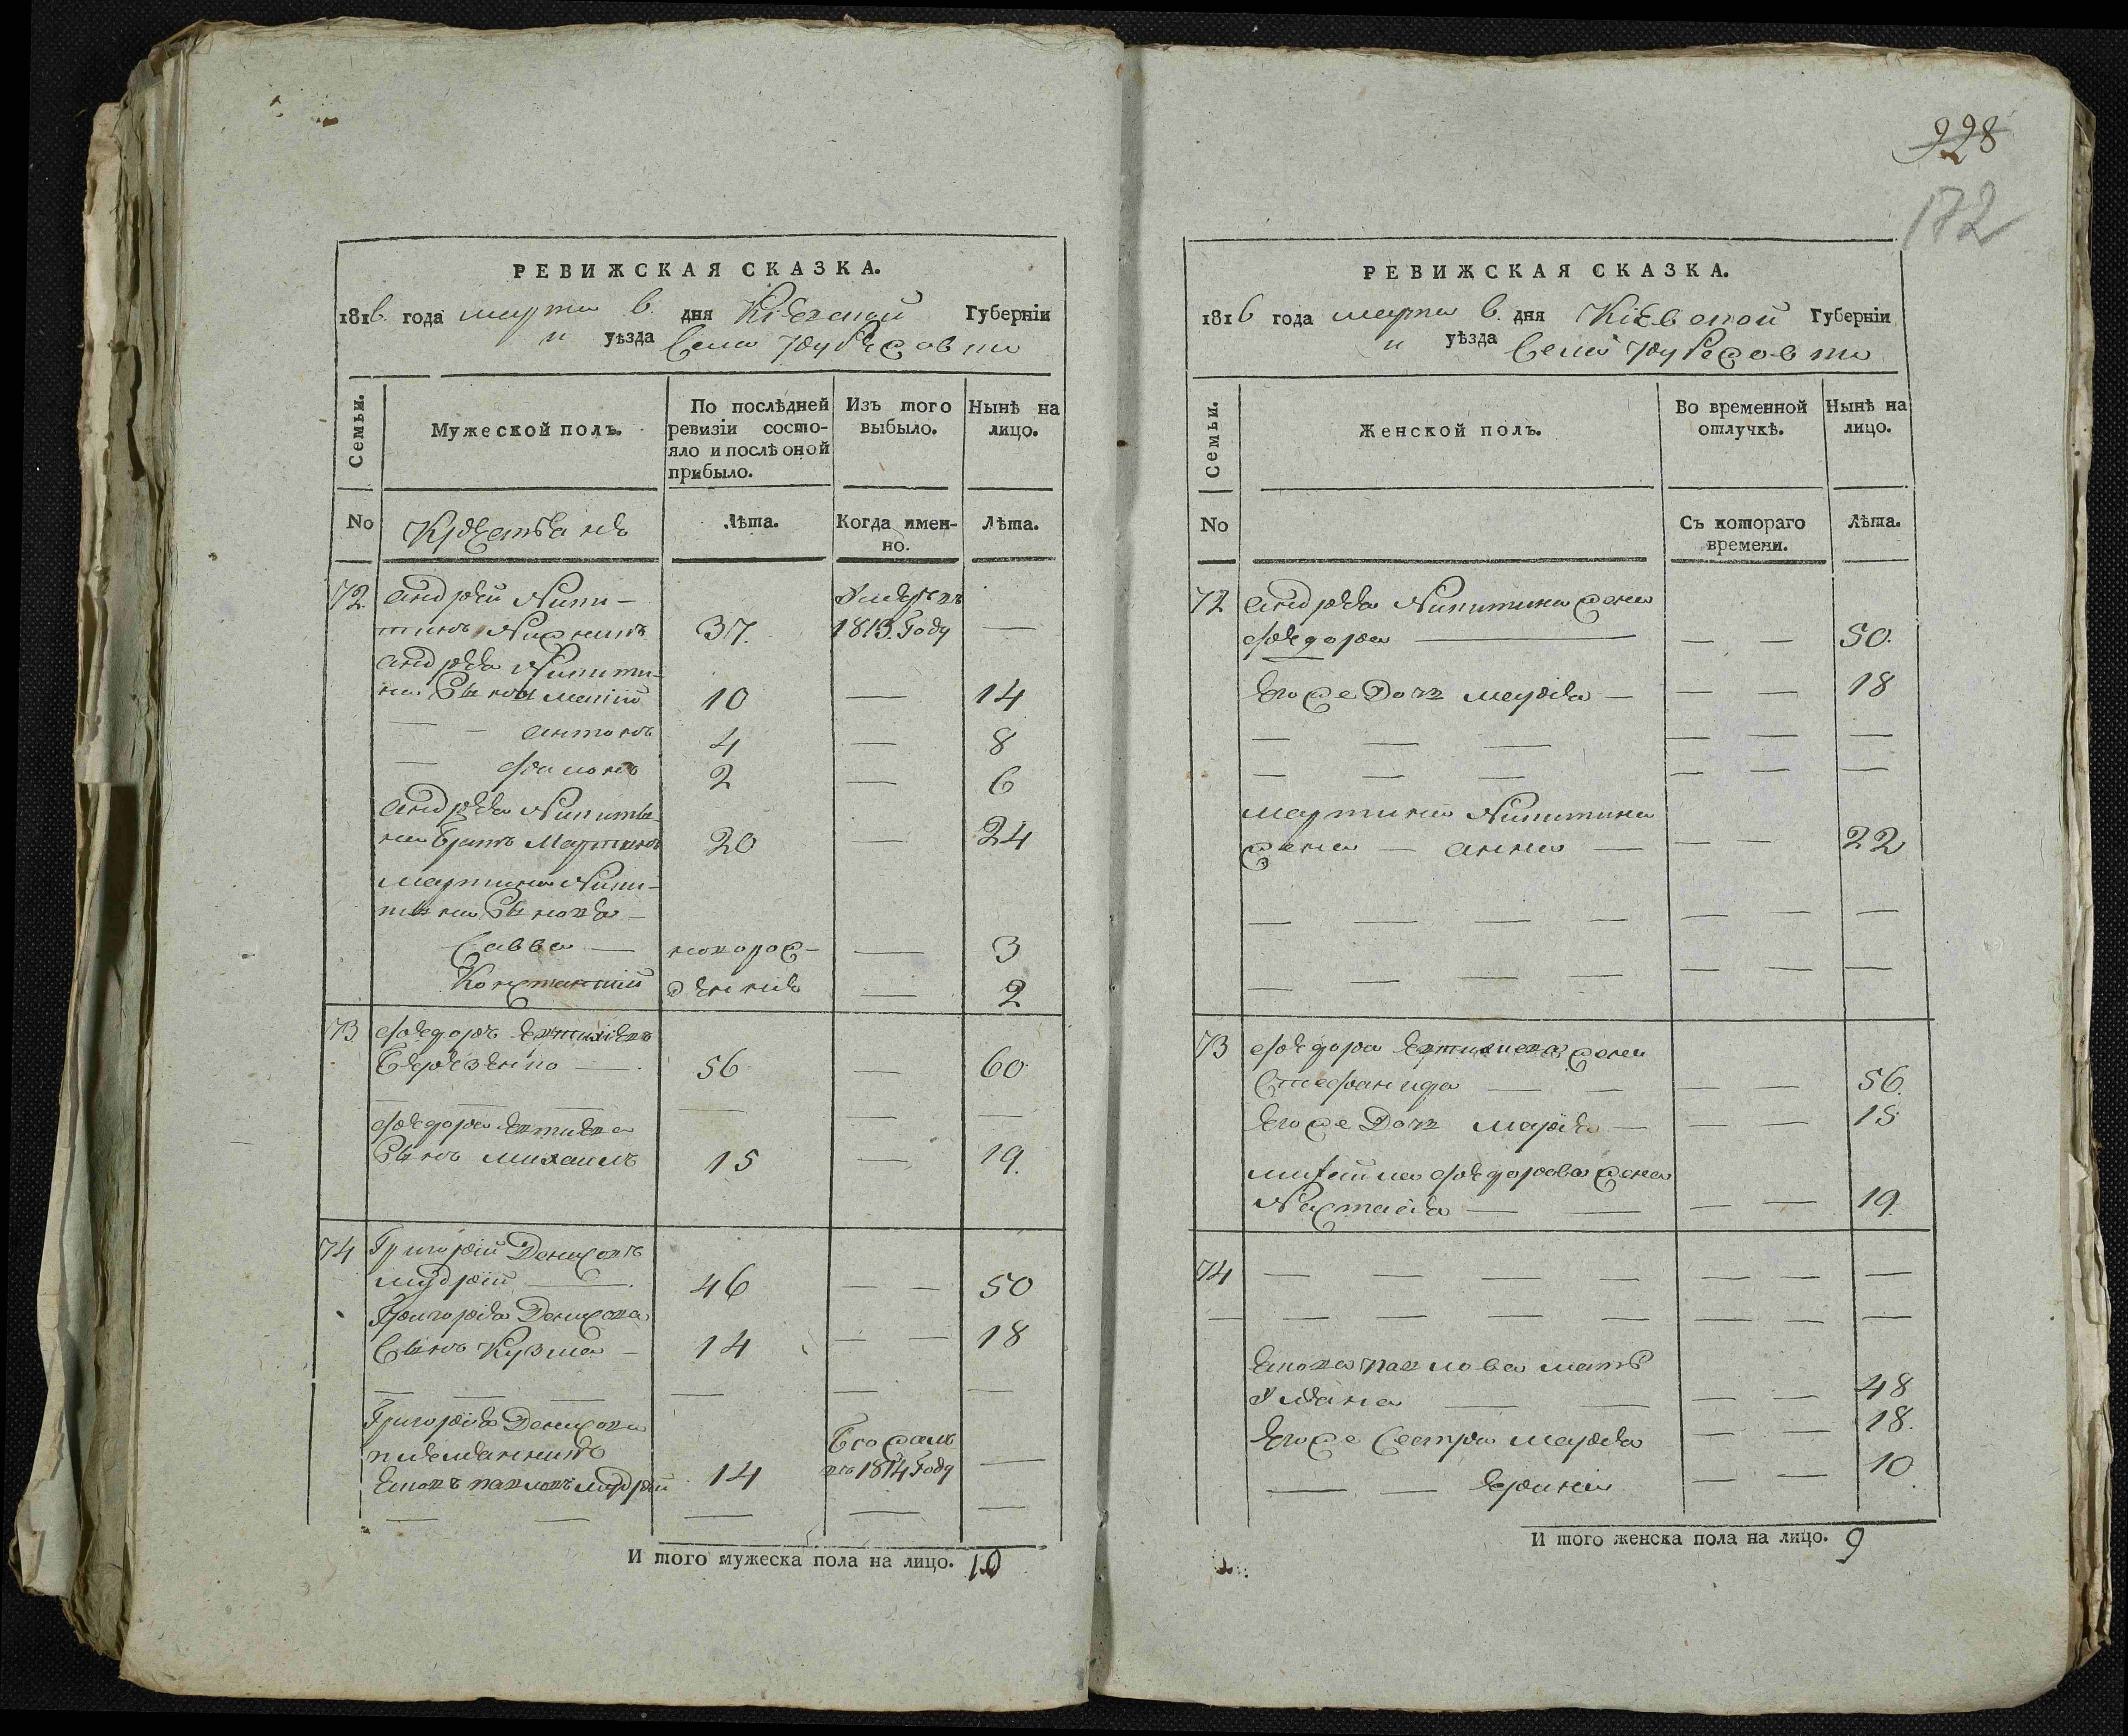 РЕВИЖСКАЯ СКАЗКА.
1816. года марта 6. дня Кіевской Губерніи
и уѣзда Села
Семьи.
Мужеской полъ.
По послѣдней ревизіи состо-
яло и послѣ оной
прибыло.
Изъ того выбыло.
Нынѣ на лицо.
No
Крестьяне
Лѣта.
Когда имен-
но.
Лѣта.
72 андрей Ники- Умеръ
тинъ 37. 1813. Году —
андрея Никити-
на Сыновя 10 — 14
— — антонъ 4 — 8
— филонъ 2 — 6
андрея Никити-
на братъ Мартинъ 20 — 24
мартина Ники-
тина Сыновя —
Савва — новорож- — 3
Константій денние — 2
73 федоръ Евтихіевъ
Березенко — 56 — 60
— — — — — —
федора Евтиева
Сынъ михаилъ 15 — 19.
74 Григорій Денисовъ
мудрій — 46 — — 50
Григорія Денисова
Сынъ Кузма — 14 — — 18
— — — — — —
Григорія Денисова
племянникъ Бежалъ
павловъ мудрій 14 въ 1814 Году —
— — — — —
И того мужеска пола на лицо. 10
928
172
РЕВИЖСКАЯ СКАЗКА.
1816 года марта 6. дня Кіевской Губерніи
и уѣзда Села
Семьи.
Женской полъ.
Во временной отлучкѣ.
Нынѣ на лицо.
No
Съ котораго времени.
Лѣта.
72 андрея Никитина жена
федора — — — 50.
Егоже Дочь марія — — — 18
— — — — — —
— — — — — —
мартина Никитина
жена — анна — — — 22
— — — — — — —
— — — — — — —
73 федора Евтихиева жена
Стефанида — — — — 56.
Егоже Дочь марія — — — 15
михаила федорова жена
Настасія — — — — 19
74 — — — — — — —
— — — — — — —
павлова мать
Уляна — — — — 48
Егоже Сестра марія — — 18.
— — Ерина — — 10
И того женска пола на лицо. 9